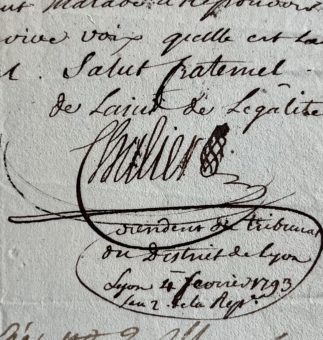 vive voix quelle est la
Salut fraternel
de l'ami de l'égalité
Chalier
président du tribunal
du District de Lyon
Lyon 4 fevrier 1793
l'an 2 de la Rep